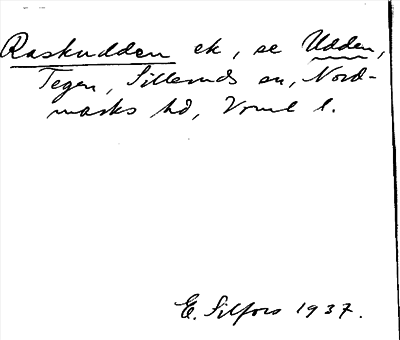 Raskudden ek, se Udden,
Tegen, Silleruds sn, Nord-
marks hd, Vrml l.
E. Silfors 1937.